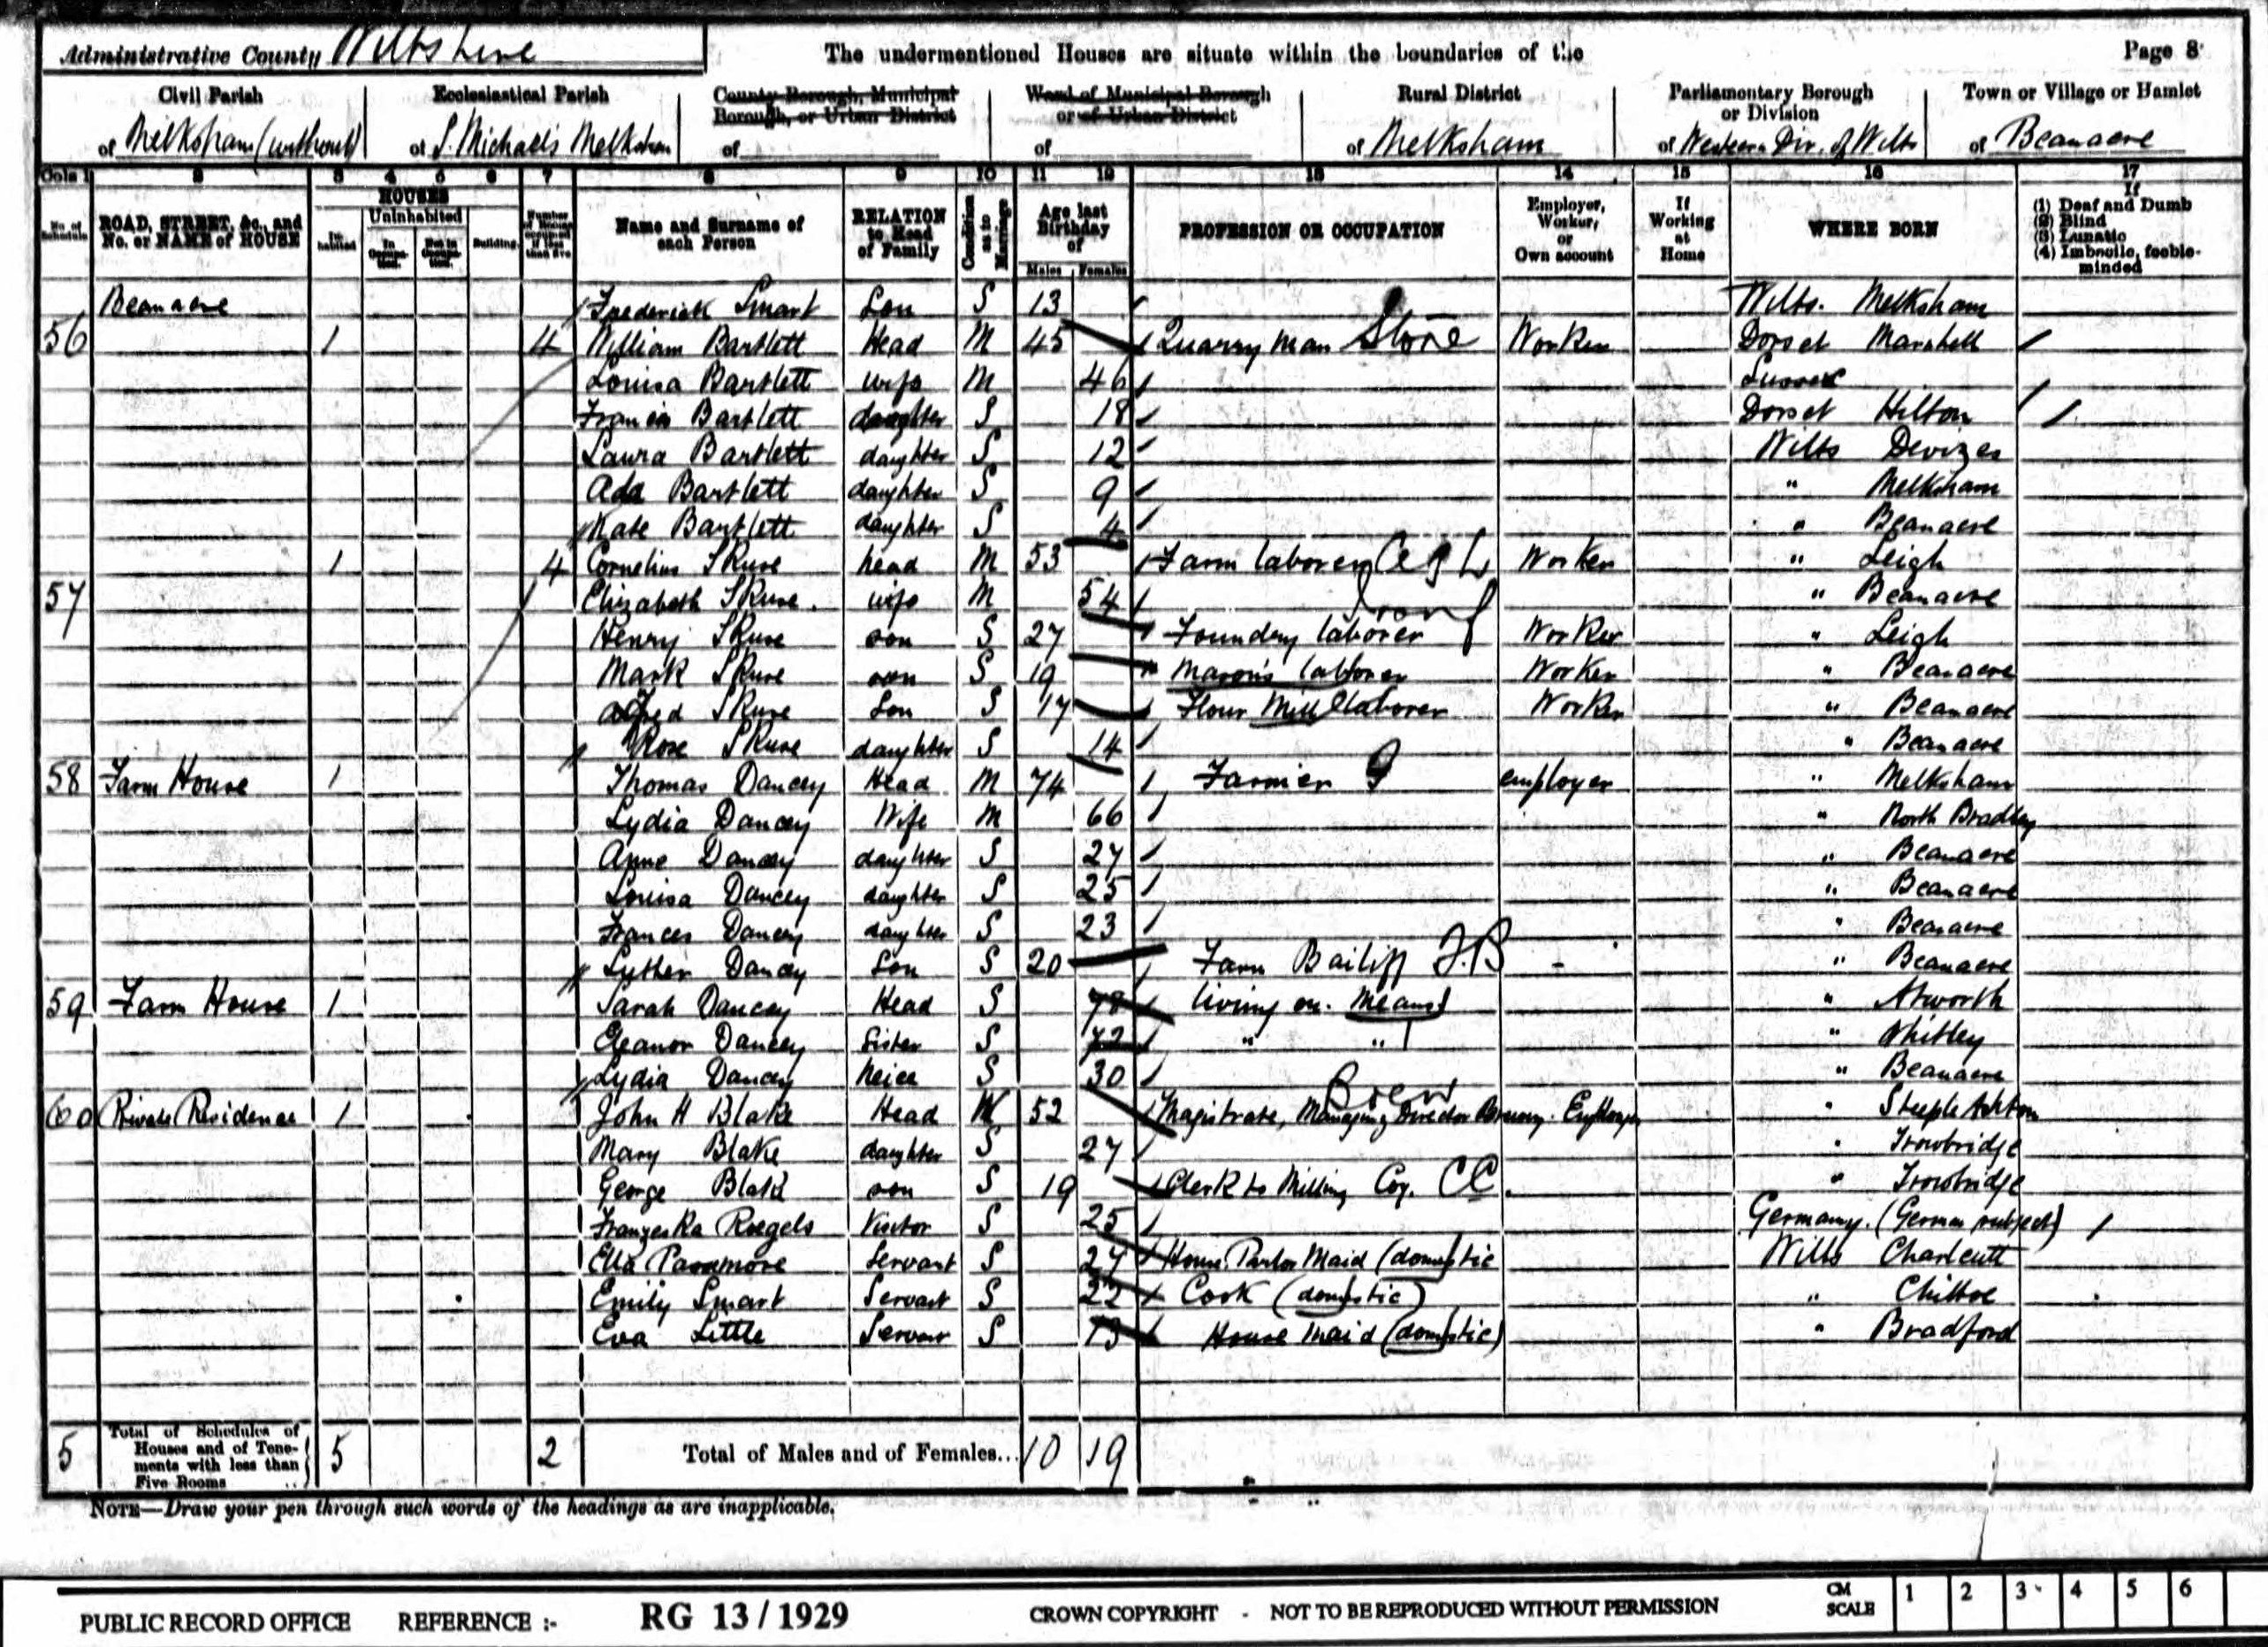 Administrative County Wiltshire The undermentioned Houses are situate within the boundaries of the Page 8
Civil Parish Ecclesiastical Parish County Borough, Municipal Borough, or Urban District Ward of Municipal Borough or of Urban District Rural District Parliamentary Borough or Division Town or Village or Hamlet
of Melksham (without) of S. Michael's Melksham of of of Melksham of Western Div. of Wilts of Beanacre
Cols 1 2 3 4 5 6 7 8 9 10 11 12 13 14 15 16 17
No. of Schedule ROAD, STREET, &c., and No. or NAME of HOUSE HOUSES Inhabited Uninhabited In Occupation. Not in Occupation. Building. Number of Rooms occupied if less than five Name and Surname of each Person RELATION to Head of Family Condition as to Marriage Age last Birthday of Males Females PROFESSION OR OCCUPATION Employer, Worker, or Own account If Working at Home WHERE BORN If (1) Deaf and Dumb (2) Blind (3) Lunatic (4) Imbecile, feeble-minded
Beanacre Frederick Smart Son S 13 Wilts. Melksham
56 1 4 William Bartlett Head M 45 Quarry man Stone Worker Dorset
Louisa Bartlett wife M 46 Sussex
Francis Bartlett daughter S 18 Dorset Hilton
Laura Bartlett daughter S 12 Wilts Devizes
Ada Bartlett daughter S 9 " Melksham
Kate Bartlett daughter S 4 " Beanacre
1 4 Cornelius Skuse head M 53 Farm laborer Worker " Leigh
57 Elizabeth Skuse. wife M 54 " Beanacre
Henry Skuse son S 27 Foundry laborer Iron Worker " Leigh
Mark Skuse son S 19 Mason's laborer Worker " Beanacre
Alfred Skuse Son S 17 Flour Mill laborer Worker " Beanacre
Rose Skuse daughter S 14 " Beanacre
58 Farm House 1 Thomas Dancey Head M 74 Farmer employer " Melksham
Lydia Dancey Wife M 66 " North Bradley
Anne Dancey daughter S 27 " Beanacre
Louisa Dancey daughter S 25 " Beanacre
Frances Dancey daughter S 23 " Beanacre
Luther Dancey Son S 20 Farm Bailiff F.B - " Beanacre
59 Farm House 1 Sarah Dancey Head S 78 living on. Means " Atworth
Eleanor Dancey Sister S 72 " " " Whitley
Lydia Dancey Neice S 30 " Beanacre
60 Private Residence 1 John H Blake Head 52 Magistrate, Managing Director Brewery. Brew Employer " Steeple Ashton
Mary Blake daughter S 27 " Trowbridge
George Blake son S 19 Clerk to Milling Coy. CC. " Trowbridge
Franzeska Ruegels Visitor S 25 Germany. (German subject)
Ella Paramore Servant S 27 House Parlor Maid (domestic Wilts Charlcutt
Emily Smart Servant S 22 Cook (domestic) " Chittoe
Eva Little Servant S House Maid (domestic) " Bradford
5 Total of Schedules of Houses and of Tenements with less than Five Rooms 5 2 Total of Males and of Females... 10 19
NOTE—Draw your pen through such words of the headings as are inapplicable.
PUBLIC RECORD OFFICE REFERENCE :- RG 13 / 1929 CROWN COPYRIGHT - NOT TO BE REPRODUCED WITHOUT PERMISSION CM SCALE 1 2 3 4 5 6